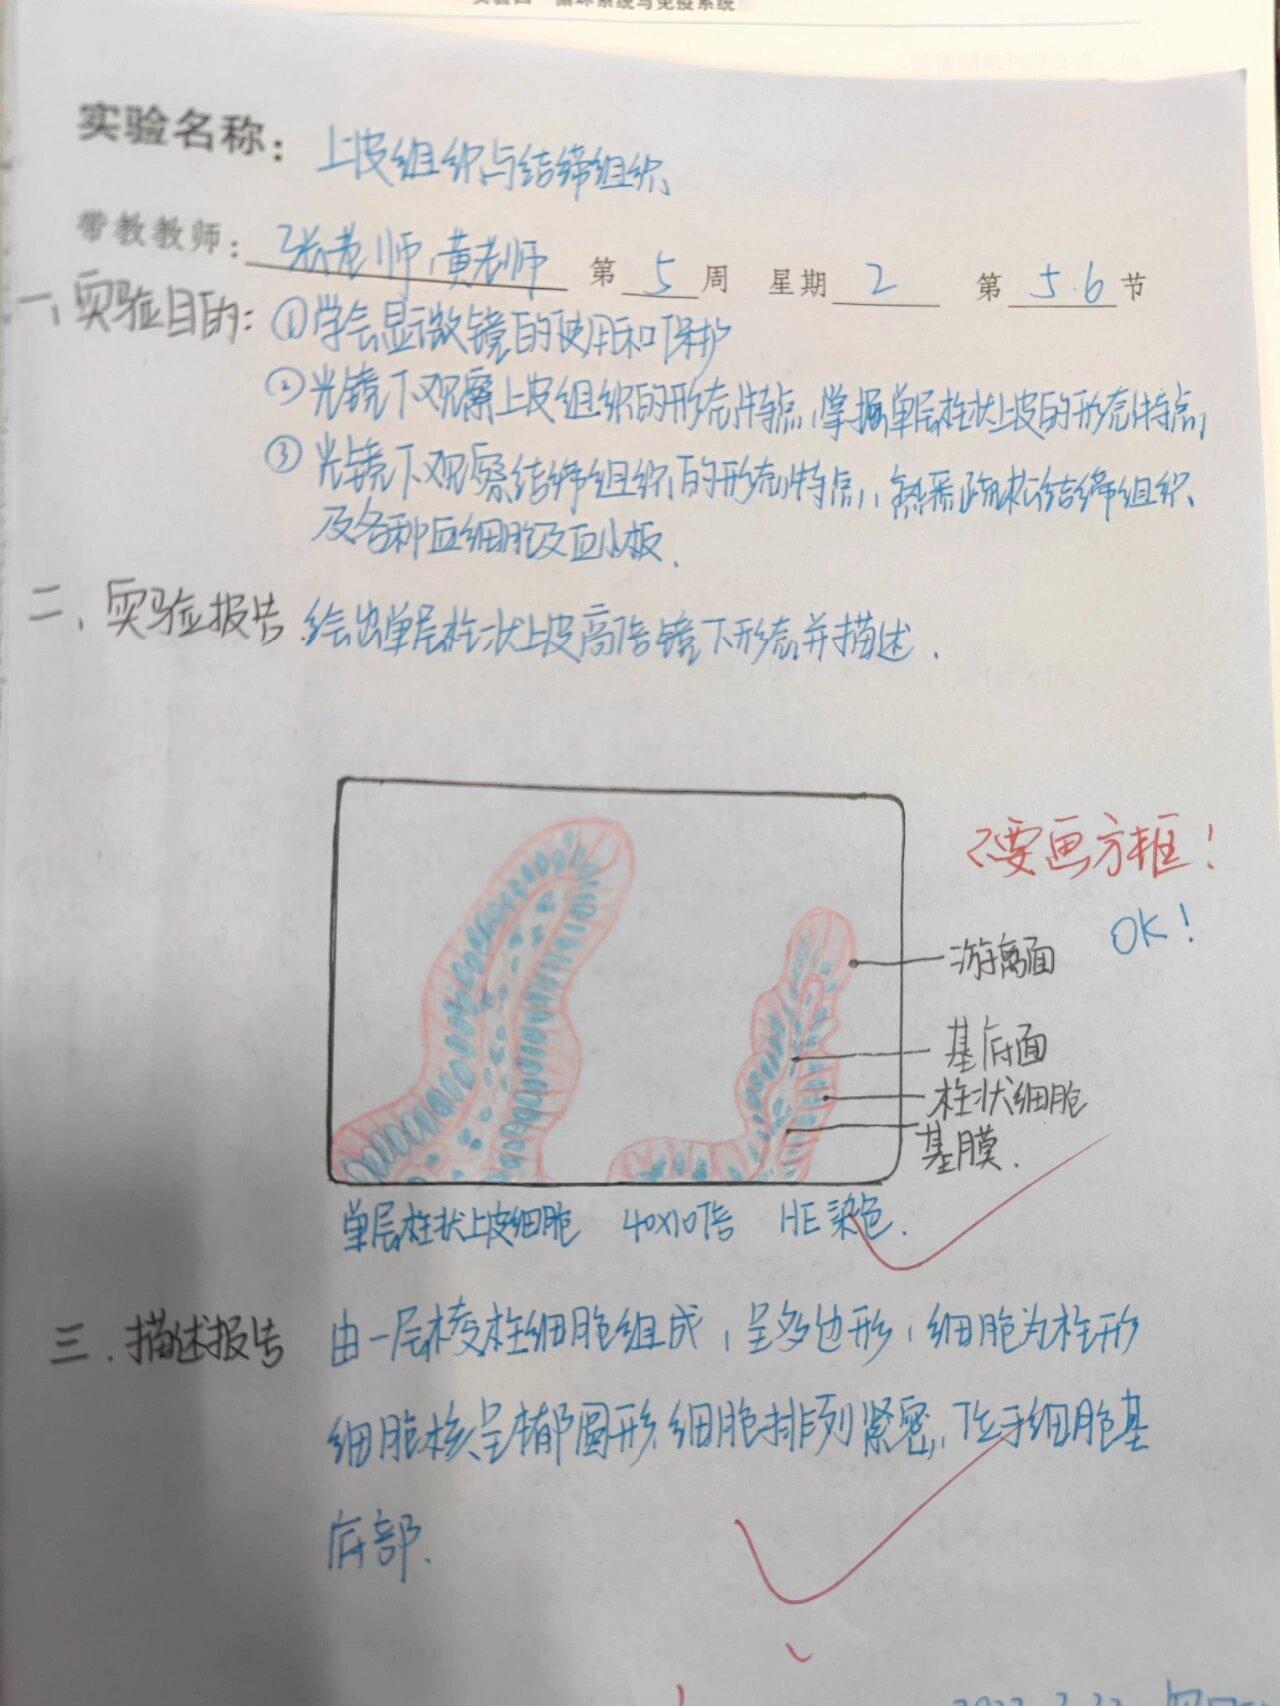 实验四 循环系统与免疫系统
实验名称： 上皮组织与结缔组织
带教教师： 张老师，黄老师 第 5 周 星期 2 第 5.6 节
一、实验目的：①学会显微镜的使用和保护
②光镜下观察上皮组织的形态特点，掌握单层柱状上皮的形态特点，
③光镜下观察结缔组织的形态特点，熟悉疏松结缔组织
及各种血细胞及血小板.
二、实验报告 绘出单层柱状上皮高倍镜下形态并描述.
不要画方框！
OK！
游离面
基底面
柱状细胞
基膜.
单层柱状上皮细胞 40×10倍 HE染色.
三.描述报告 由一层棱柱细胞组成，呈多边形，细胞为柱形
细胞核呈椭圆形，细胞排列紧密，位于细胞基
底部.